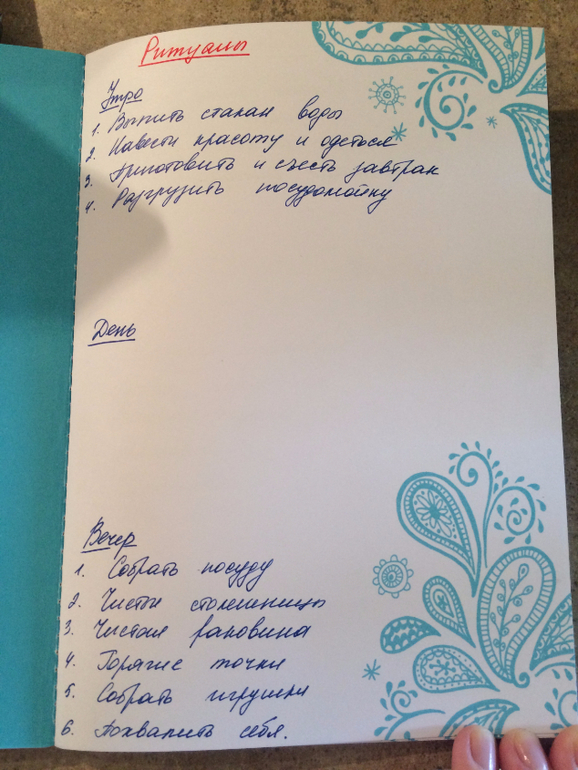 Ритуалы
Утро
1. Выпить стакан воды
2. Навести красоту и одеться
3. Приготовить и съесть завтрак
4. Разгрузить посудомойку
День
Вечер
1. Собрать посуду
2. Чистые столешницы
3. Чистая раковина
4. Горячие точки
5. Собрать игрушки
6. Похвалить себя.